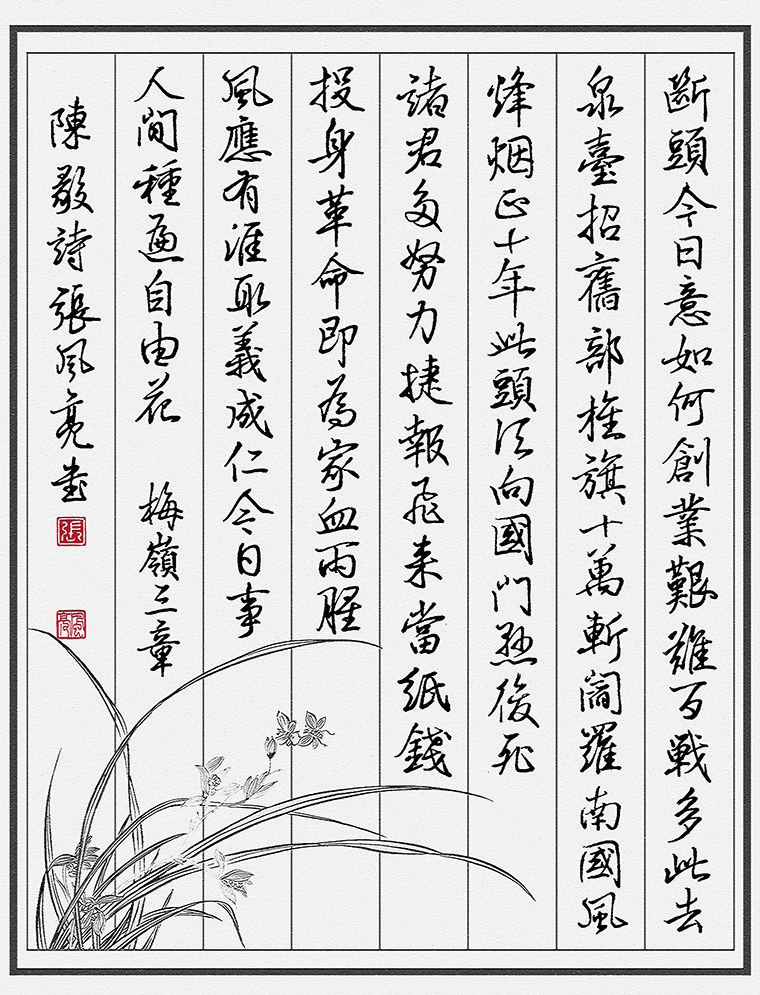 斷頭今日意如何創業艱難百戰多此去
泉臺招舊部旌旗十萬斬閻羅南國風
烽烟正十年此頭須向國門懸後死
諸君多努力捷報飛來當紙錢
投身革命即為家血雨腥
風應有涯取義成仁今日事
人間種遍自由花 梅嶺三章
陳毅詩張風亮書
張
風亮